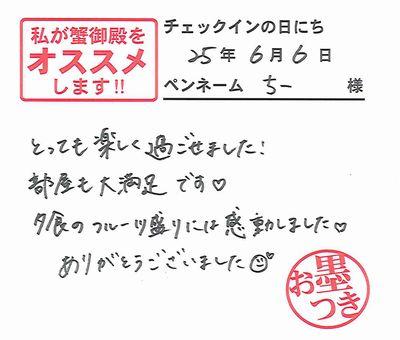 私が蟹御殿を
オススメ
します!!
チェックインの日にち
25年6月6日
ペンネーム ちー 様
とっても楽しく過ごせました!
部屋も大満足です♡
夕食のフルーツ盛りには感動しました♡
ありがとうございました☺♡
お墨つき